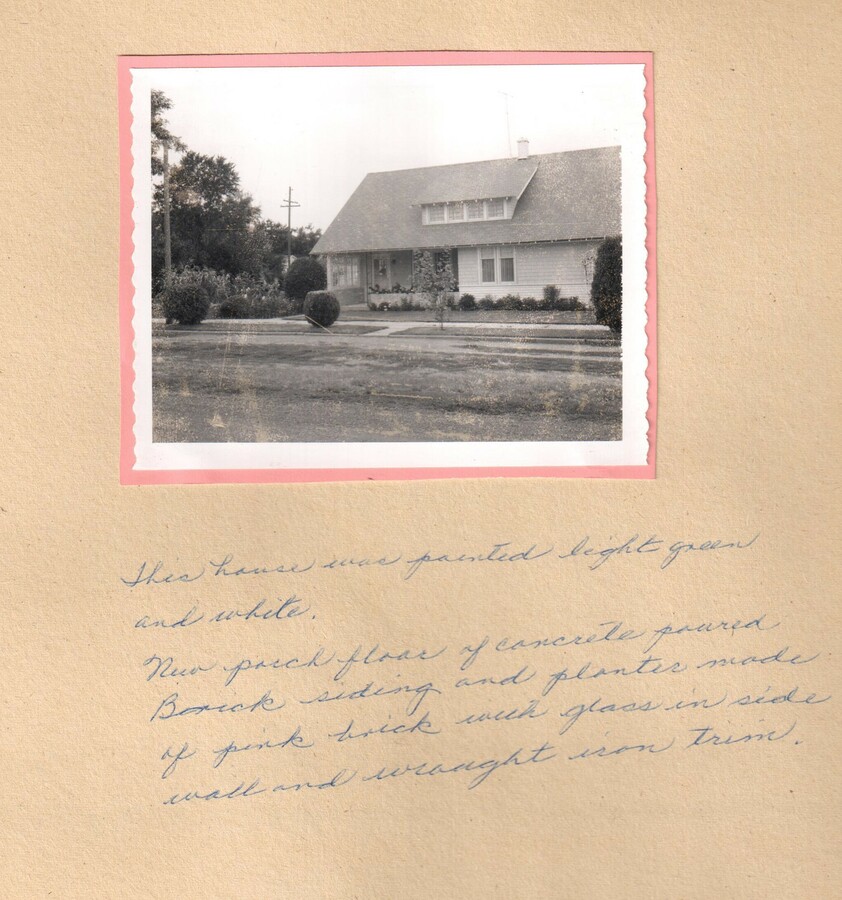 This house was painted light green
and white.
New porch floor of concrete poured
Brick siding and planter made
of pink brick with glass in side
wall and wrought iron trim.